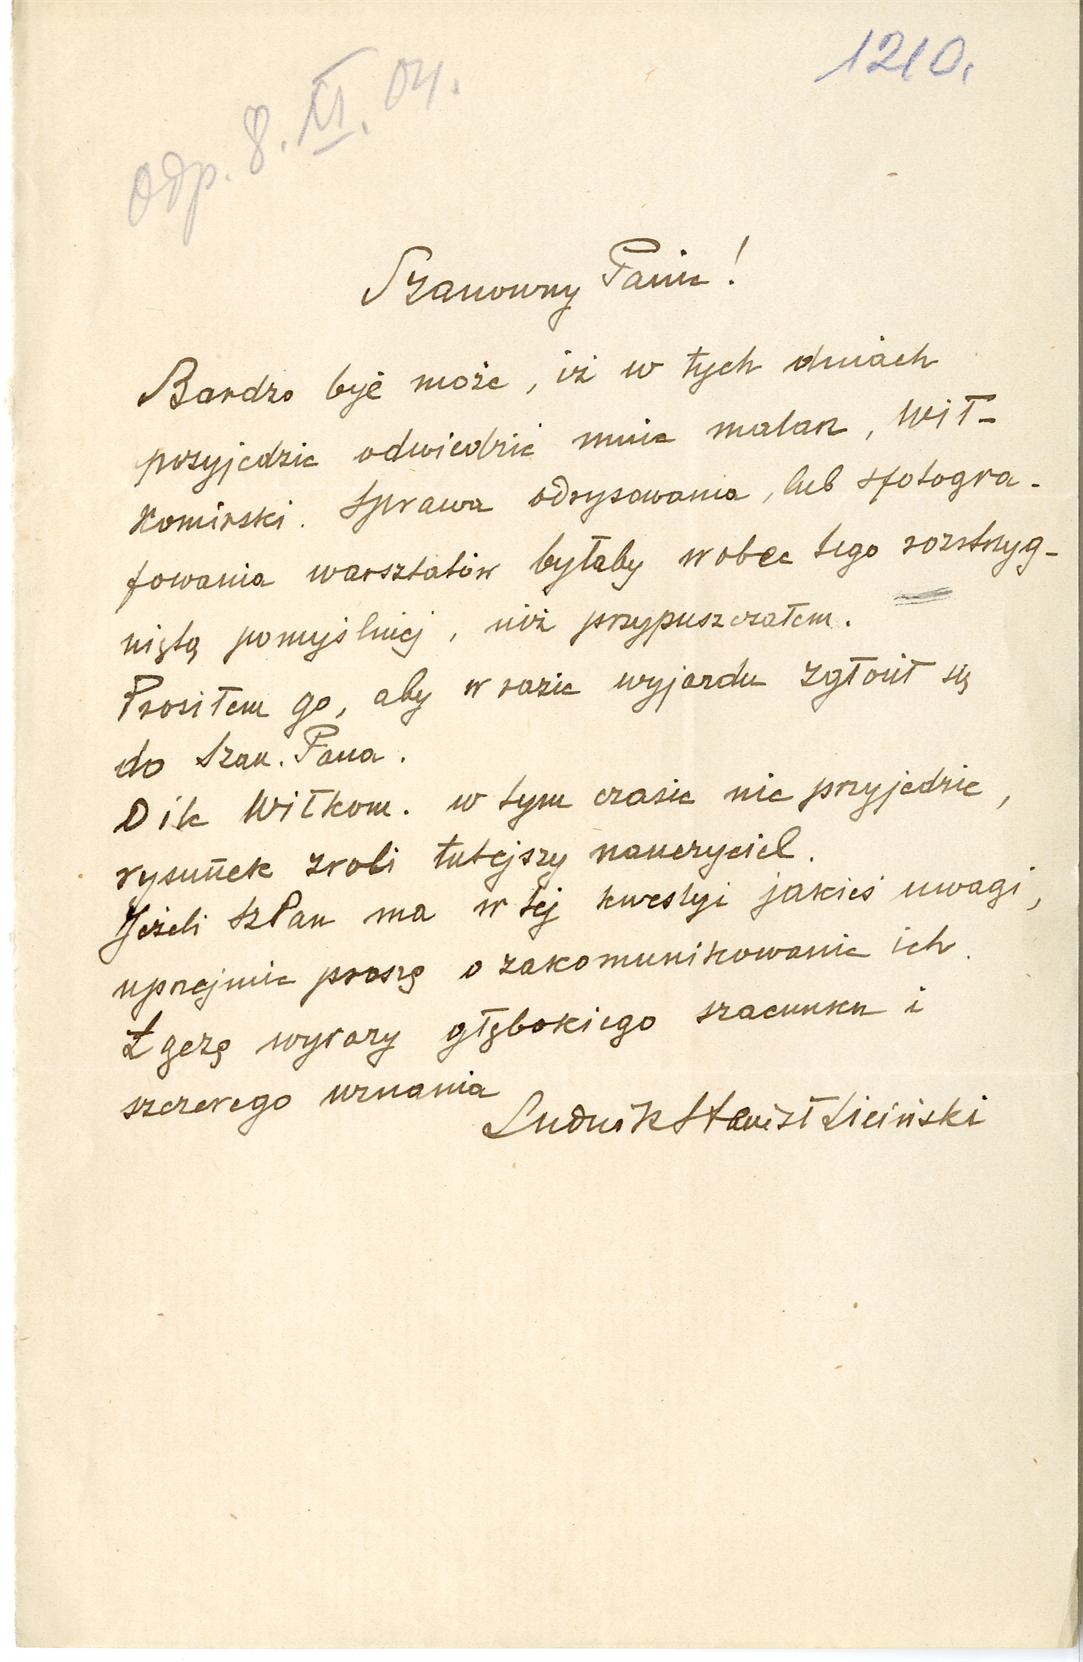 1210.
Odp. 8. XI. 04.
Szanowny Panie!
Bardzo być może, iż w tych dniach
przyjedzie odwiedzić mnie malarz, Wił-
komirski. Sprawa odrysowania, lub sfotogra-
fowania warsztatów byłaby wobec tego rozstrzyg-
niętą pomyślniej, niż przypuszczałem.
Prosiłem go, aby w razie wyjazdu zgłosił się
do Szan. Pana.
O ile Wiłkom. w tym czasie nie przyjedzie,
rysunek zrobi tutejszy nauczyciel.
Jeżeli SzPan ma w tej kwestyi jakieś uwagi,
uprzejmie proszę o zakomunikowanie ich.
Łączę wyrazy głębokiego szacunku i
szczerego uznania
Ludwik Stanisł Liciński